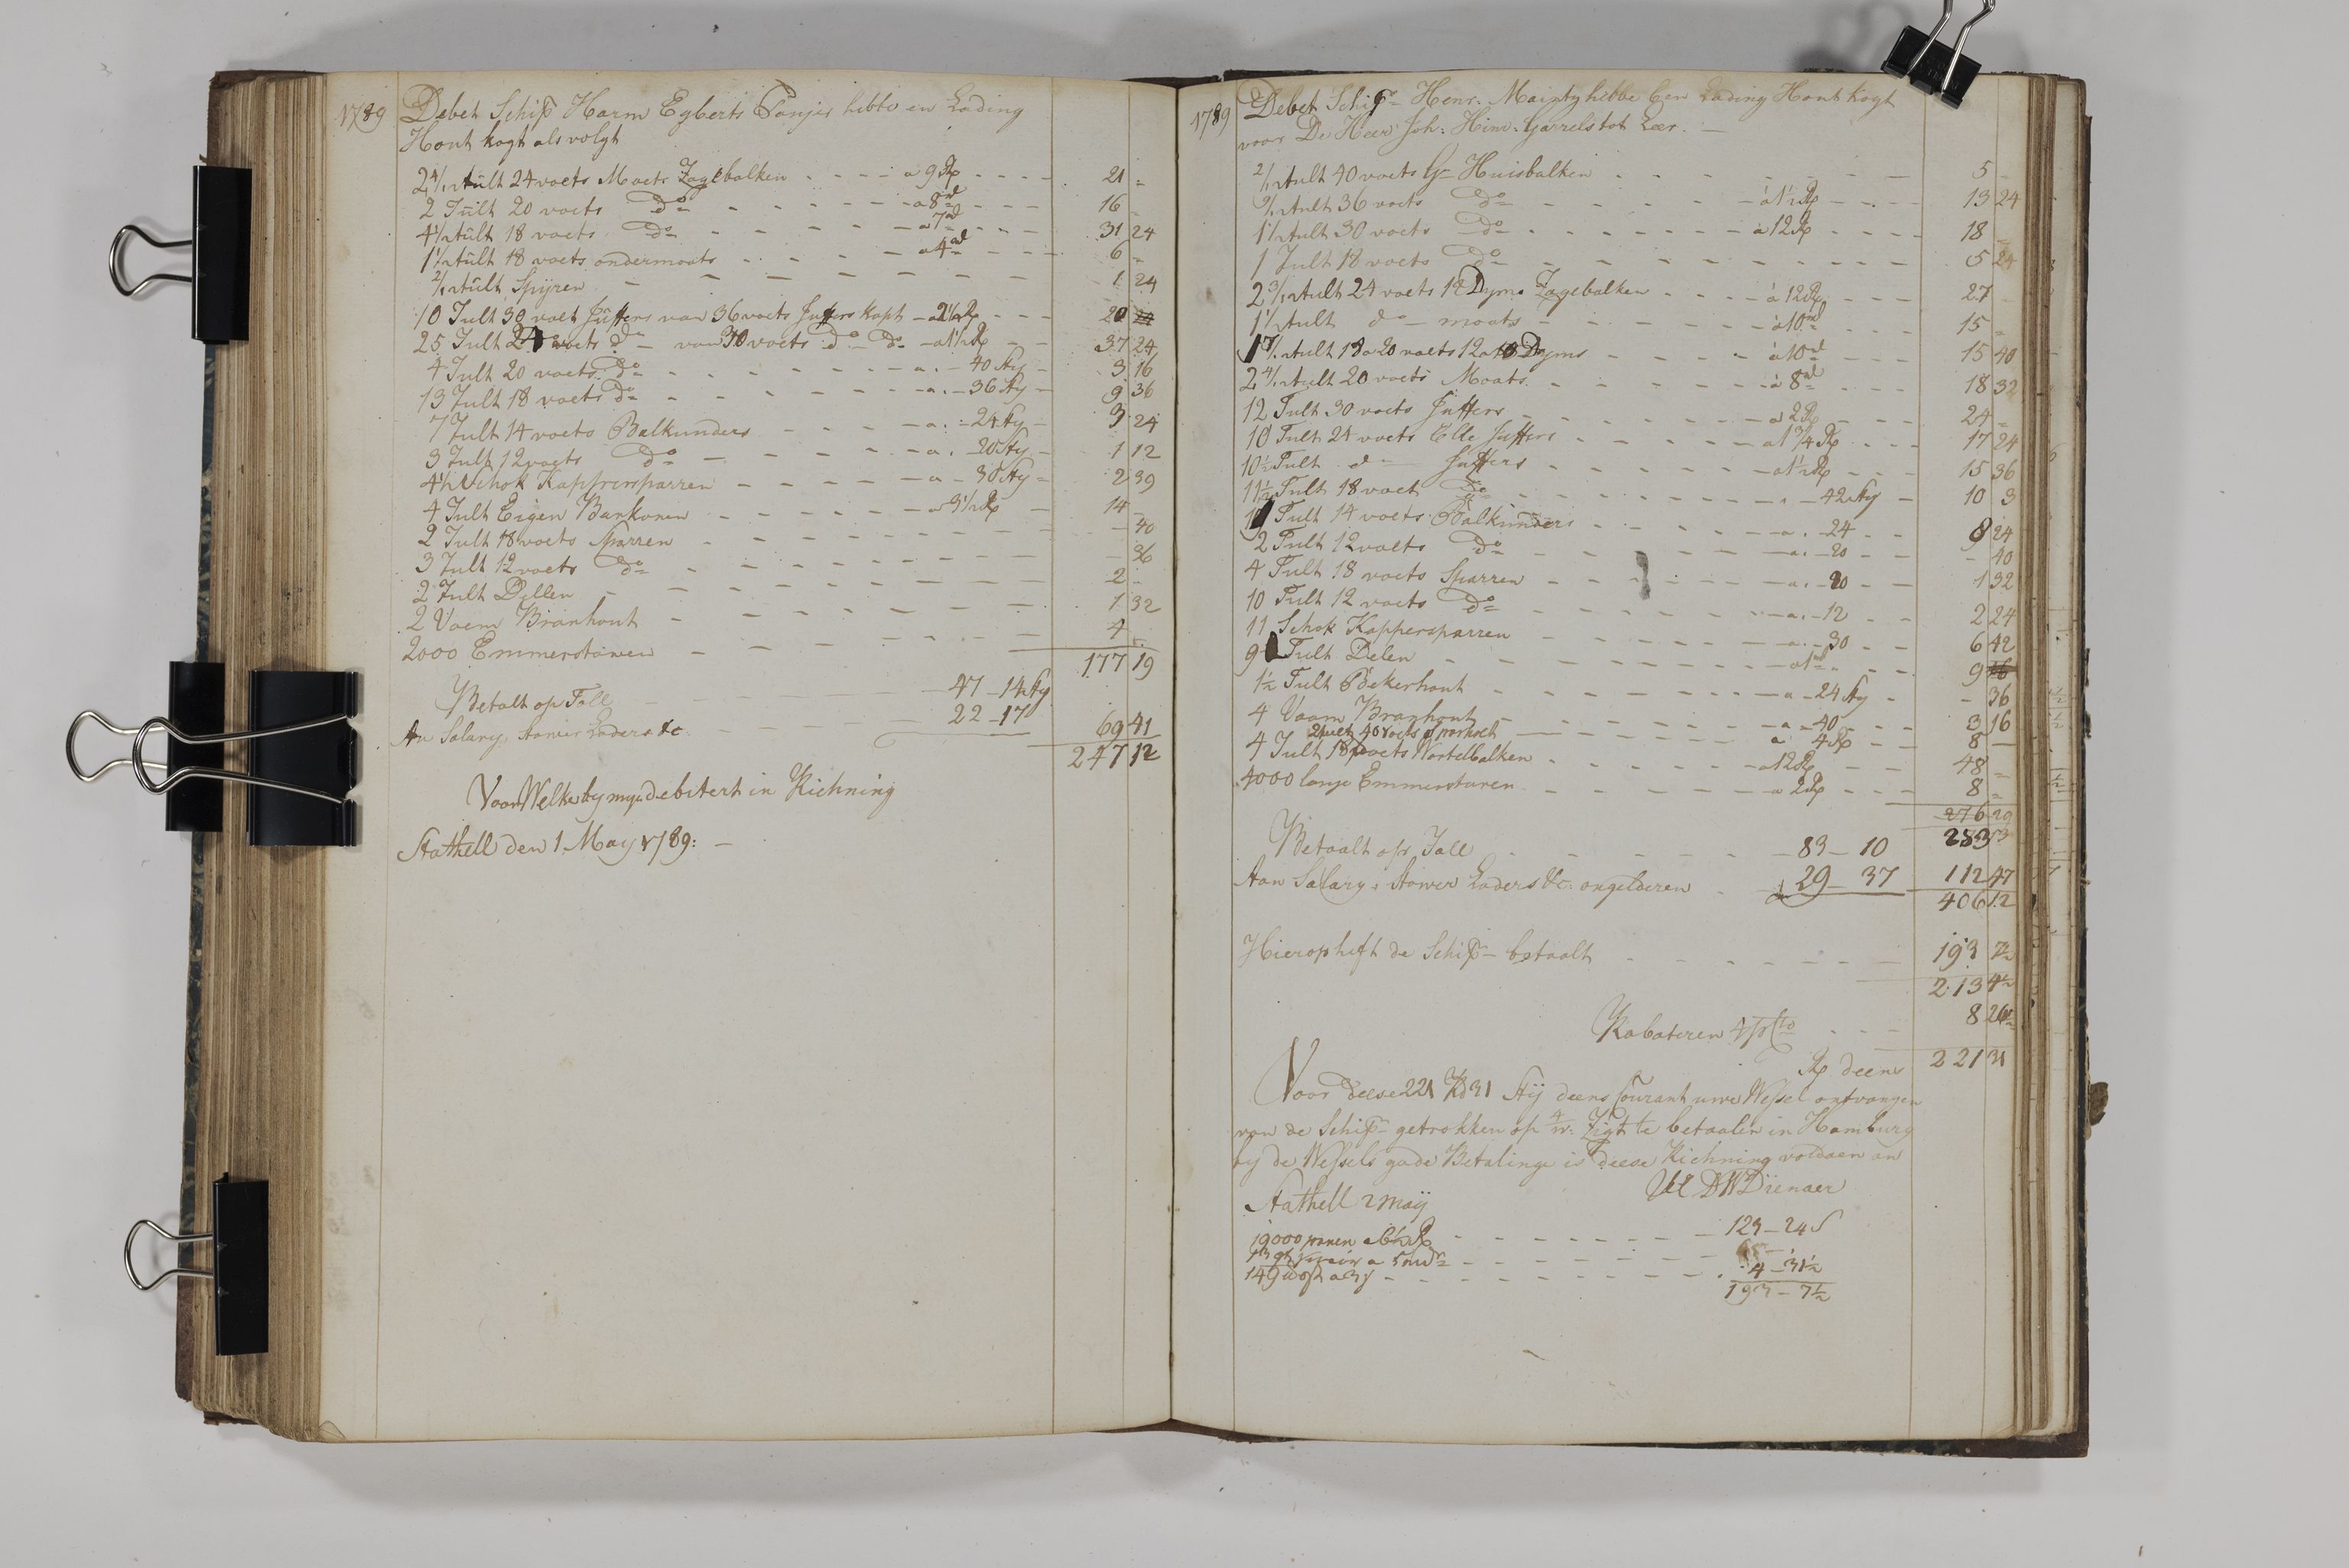 1789 Debet Schip Harm Egberts Sanjer hebbe en Lading
Hout kogt als volgt
2 4/12 tult 24 voets Moets Zagebalken a 9 Rd 21 -
2 Tult 20 voets do a 8 rd 16 -
4 1/2 tult 18 voets do a 7 rd 31 24
1 1/2 tult 18 voets ondermaats a 4 rd 6 -
2/12 tult Spijren 1 24
10 Tult 30 voet Juffers van 36 voets Juffers kapt a 2 Rd 20
25 Tult 24 voets do van 30 voets do do a 1 1/2 Rd 37 24
4 Tult 20 voets do a 40 sty 3 16
13 Tult 18 voets do a 36 sty 9 36
7 Tult 14 voets Balkunders a 24 sty 3 24
3 Tult 12 voets do a 20 sty 1 12
4 1/2 Schok Kappersparren a 30 sty 2 39
4 Tult Eigen Barkonen a 3 1/2 Rd 14 -
2 Tult 18 voets Sparren - 40
3 Tult 12 voets do - 36
2 Tult Dellen 2 -
2 Vaem Branhout 1 32
2000 Emmerstawen 4 -
177 19
Betalt op Tall 47 - 14 sty
An Salary, stower Loders &c. 22 - 17 69 41
247 12
Voor Welke by mye debitert in Richning
Stathell den 1 May 1789: -
1789 Debet Schipr Henr. Mainty hebbe Een Lading Hout kogt
voor De Heer Joh: Hinr: Garrels tot Leer. -
2/12 tult 40 voets Gr Huisbalken 5 -
tult 36 voets do a 1 1/2 Rd 13 24
1 1/2 tult 30 voets do a 12 Rd 18 -
1 Tult 18 voets do 5 24
2 3/12 tult 24 voets 12 Dyms Zagebalken a 12 Rd 27 -
1 1/2 tult do moats a 10 rd 15 -
1 7/12 tult 18 a 20 voets 12 a 10 Dyms a 10 rd 15 40
2 4/12 tult 20 voets Moats a 8 rd 18 32
12 Tult 30 voets Juffers a 2 Rd 24 -
10 Tult 24 voets Elle Juffers a 1 3/4 Rd 17 24
10 1/2 Tult do Juffers a 1 1/2 Rd 15 36
11 1/2 Tult 18 voet do 42 sty 10 3
17 Tult 14 voets Balkunders a 24 8 24
2 Tult 12 voets do a 20 - 40
4 Tult 18 voets Sparren a 20 1 32
10 Tult 12 voets do a 12 2 24
11 Schok Kappersparren a 30 6 42
9 Tult Delen a 1 rd 9
1 1/2 Tult Bekerhout a 24 sty - 36
4 Vaam Branhout a 40 3 16
2 40 voets a 4 Rd 8 -
4 Tult 18 voets Wortelbalken a 12 Rd 48 -
4000 lange Emmerstaven a 2 Rd 8 -
276 29
283 13
Betaalt op Tall 83 - 10
Aan Salary, stower Loders &c: ongelderen 29 - 37 112 47
406 12
Hierop heft de Schipr betaalt 193 7 1/2
213 4 1/2
Rabateren 4 pr Cto 8 26 1/2
Rd deens 221 31
Voor deese 221 Rd 31 sty deens Courant uwe Wessel ontvangen
van de Schipr getrokken op 4/w: Zigt te betaalen in Hamburg
by de Wessels gode Betalinge is deese Richning voldaen an
Ul DW Dienaer
Stathell 2 May
19000 panen a 6 1/2 Rd 123 - 24 s
149 a 3 s 4 - 31 1/2
193 - 7 1/2